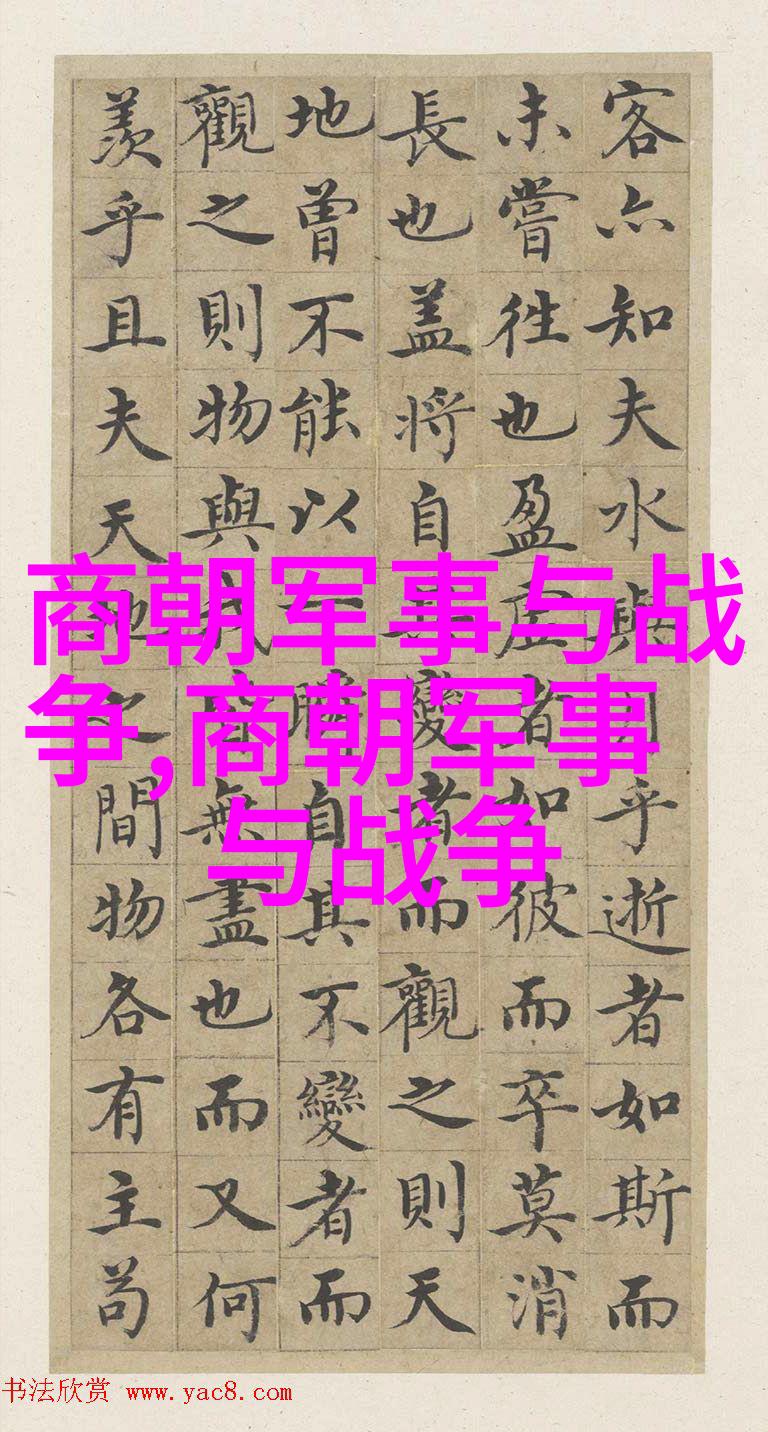 客亦知夫水與月乎逝者如斯而
未嘗往也盈虛者如彼而卒莫消
長也盖將自其變者而觀之則天
地曾不能以一瞬自其不變者而
觀之則物與我皆無盡也而又何
羨乎且夫天地之間物各有主苟
商朝军事与战
争,商朝军事
与战争
书法欣赏 www.yac8.com